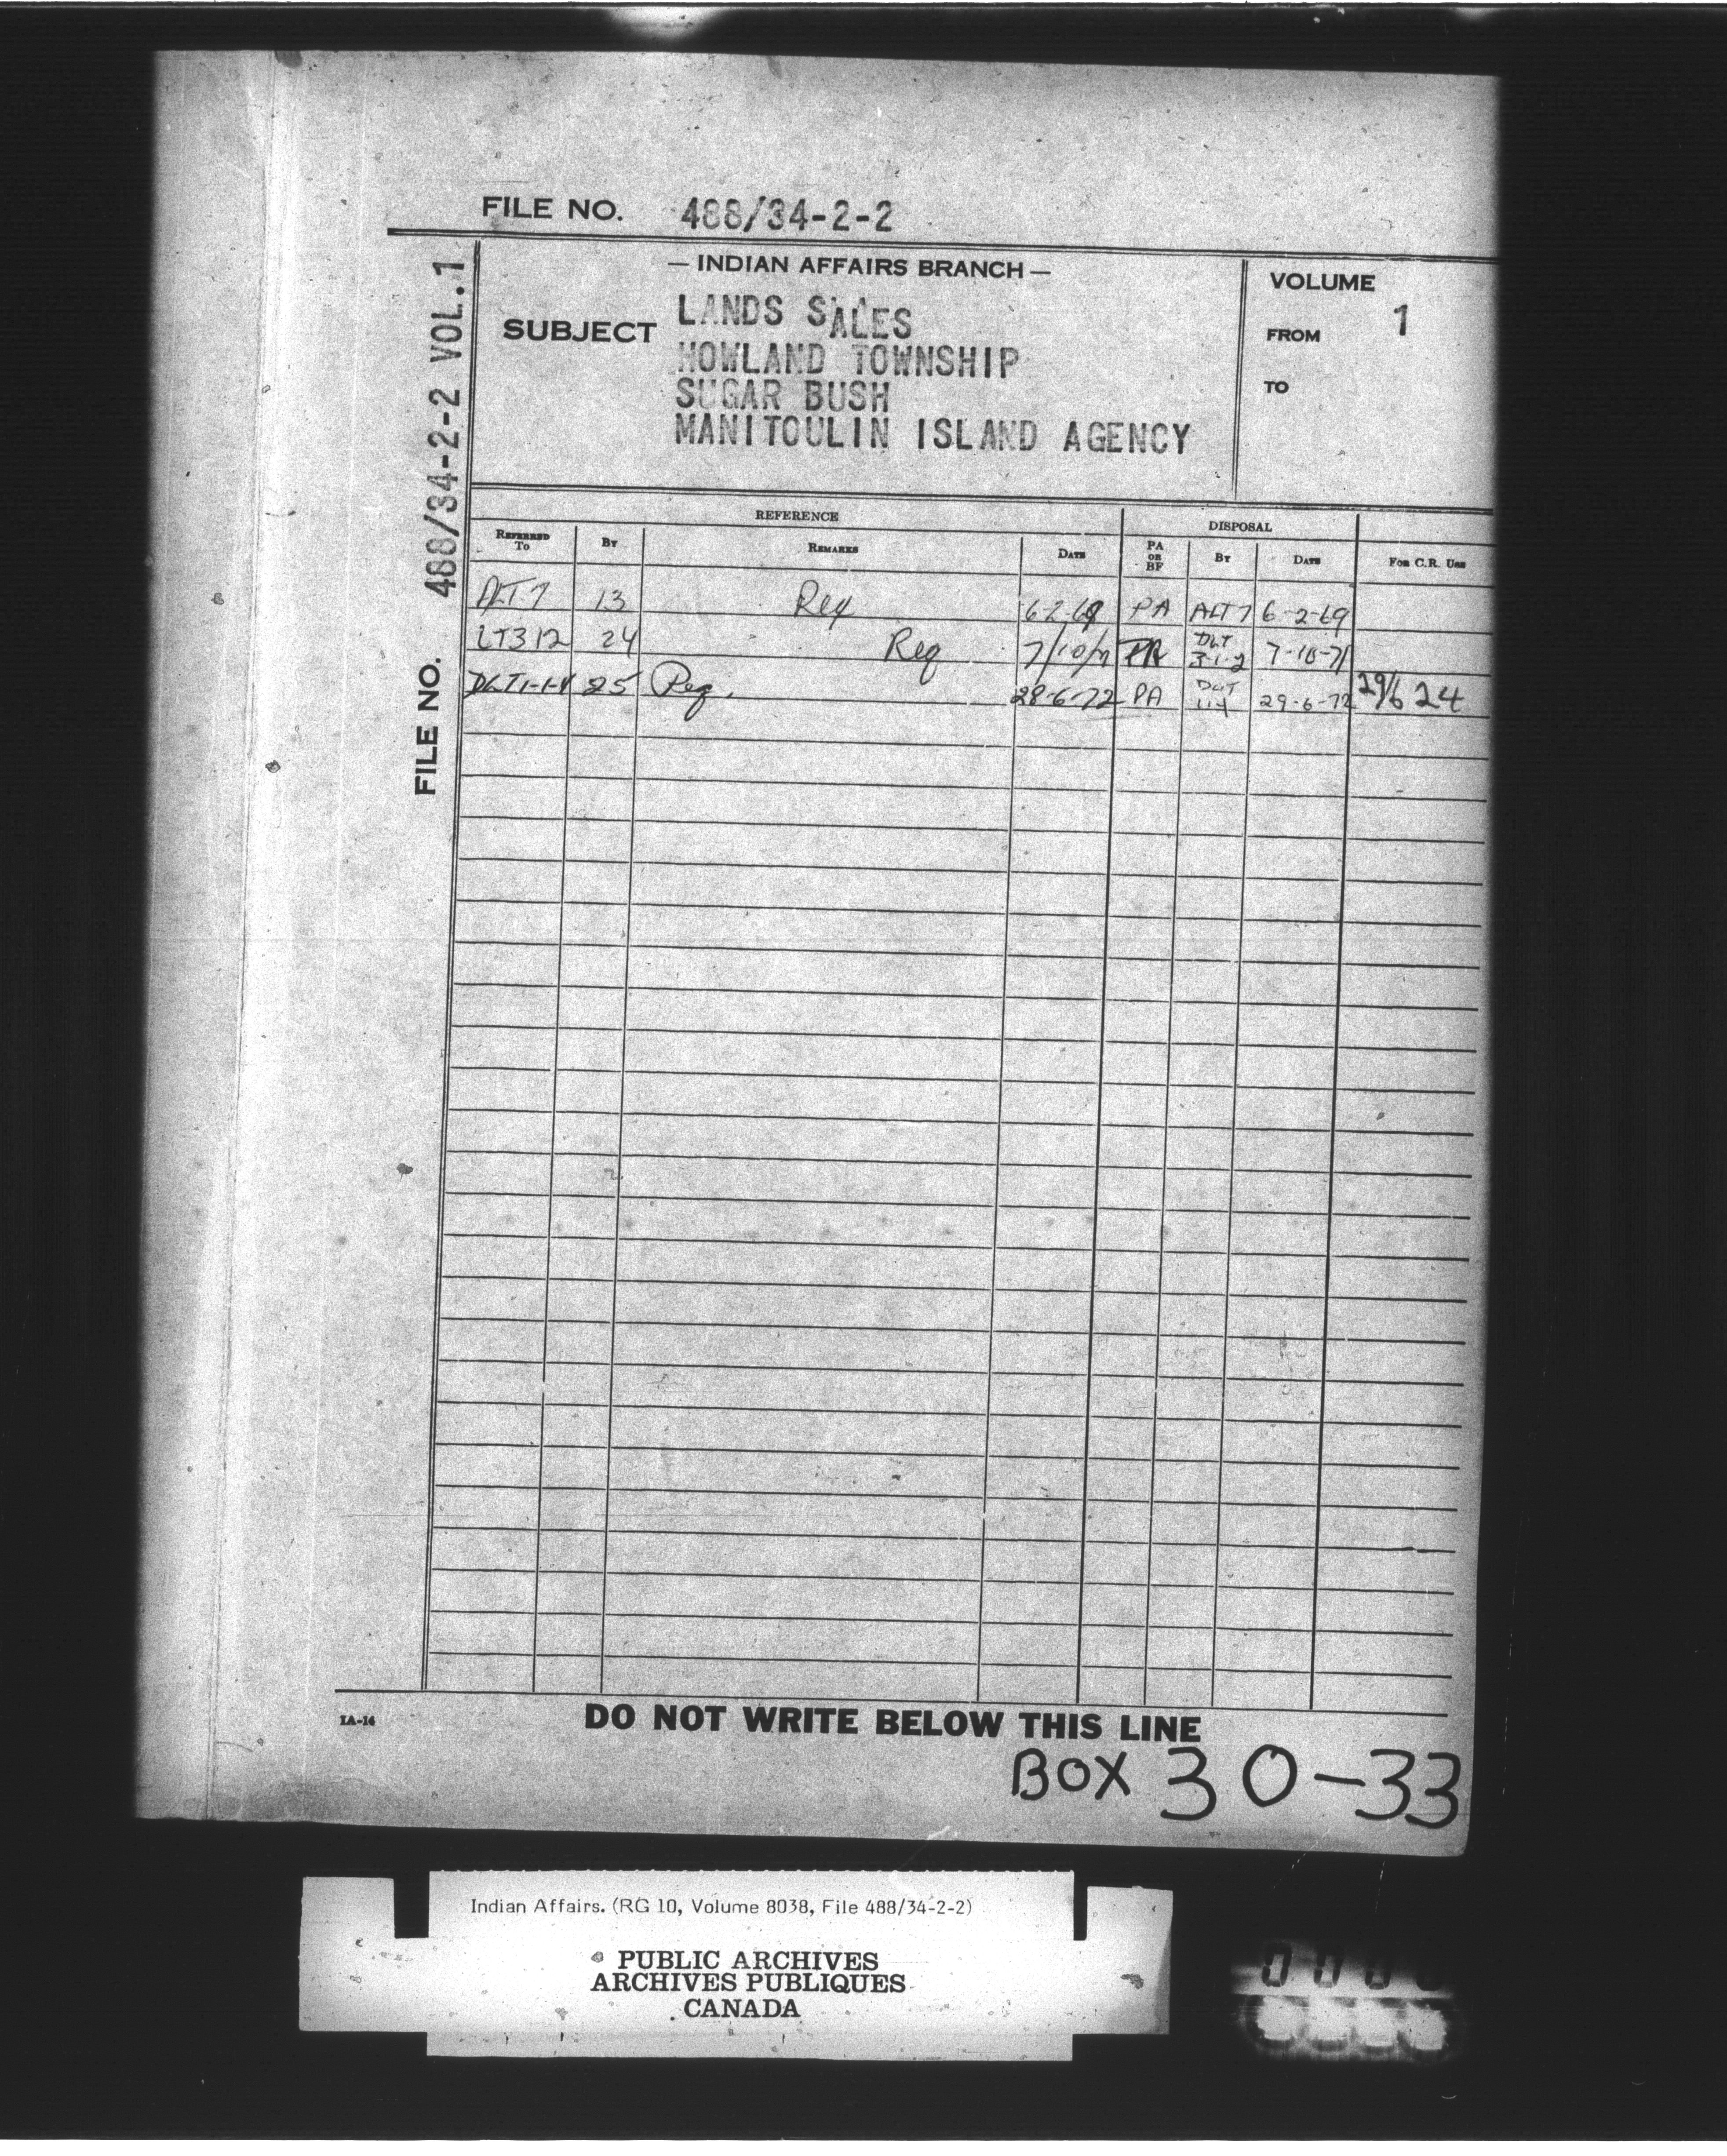 FILE NO. 488/34-2-2
— INDIAN AFFAIRS BRANCH —
SUBJECT
LANDS SALES
HOWLAND TOWNSHIP
SUGAR BUSH
MANITOULIN ISLAND AGENCY
VOLUME
1
FROM
TO
FILE NO. 488/34-2-2 VOL.1
REFERENCE
DISPOSAL
REFERRED TO BY REMARKS DATE PA OR BF BY DATE FOR C.R. USE
ALT7 13 Req 6-2-69 PA ALT7 6-2-69
LT312 24 Req 7/10/71 PA DLT 3-1-2 7-10-71
DLT1-1-4 25 Req. 28-6-72 PA DLT 114 29-6-72 29/6 24
IA-14
DO NOT WRITE BELOW THIS LINE
BOX 30-33
Indian Affairs. (RG 10, Volume 8038, File 488/34-2-2)
PUBLIC ARCHIVES
ARCHIVES PUBLIQUES
CANADA